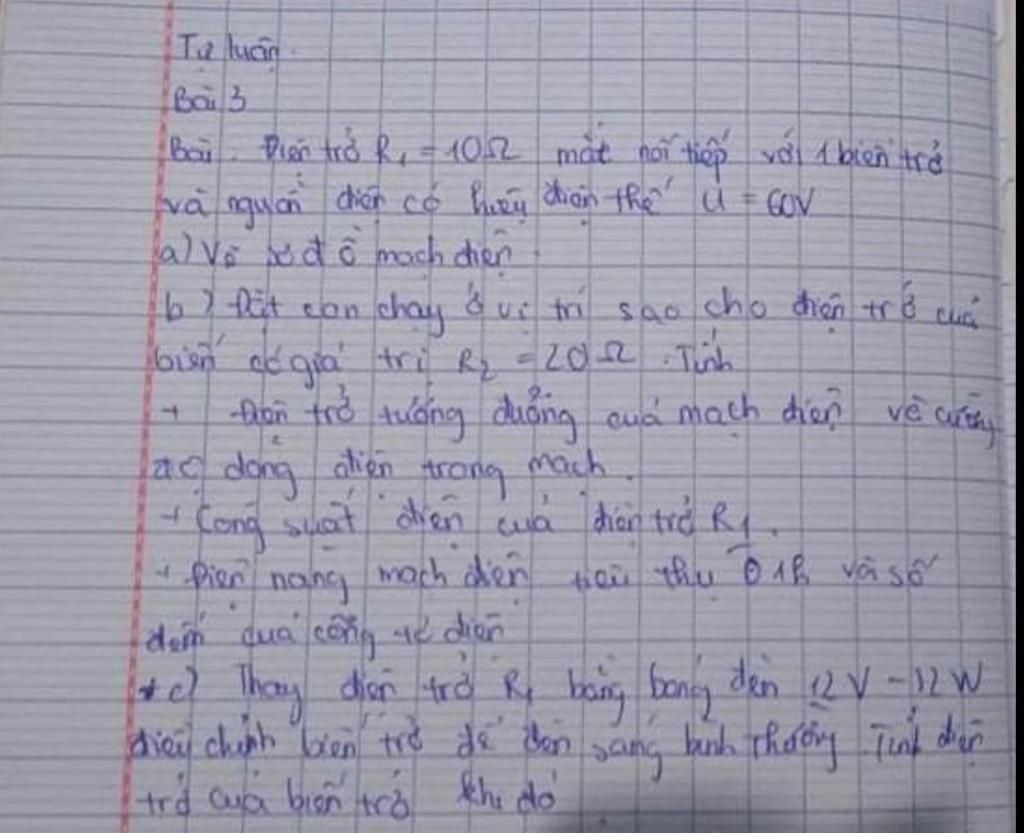 Tự luận.
Bài 3
Bài. Điện trở R₁ = 10Ω mắt nối tiếp với 1 biến trở
và nguồn điện có hiệu điện thế U = 60V
a) Vẽ sơ đồ mạch điện.
b) Đặt con chạy ở vị trí sao cho điện trở của
biến có giá trị R₂ = 20Ω. Tính
+ Điện trở tương đương của mạch điện về cường
độ dòng điện trong mạch.
+ Công suất điện của điện trở R₁.
+ Điện năng mạch điện tiêu thụ 1h và số
đếm của công tơ điện
* c) Thay điện trở R₁ bằng bóng đèn 12V - 12W
điều chỉnh biến trở để đèn sáng bình thường Tính điện
trở của biến trở khi đó